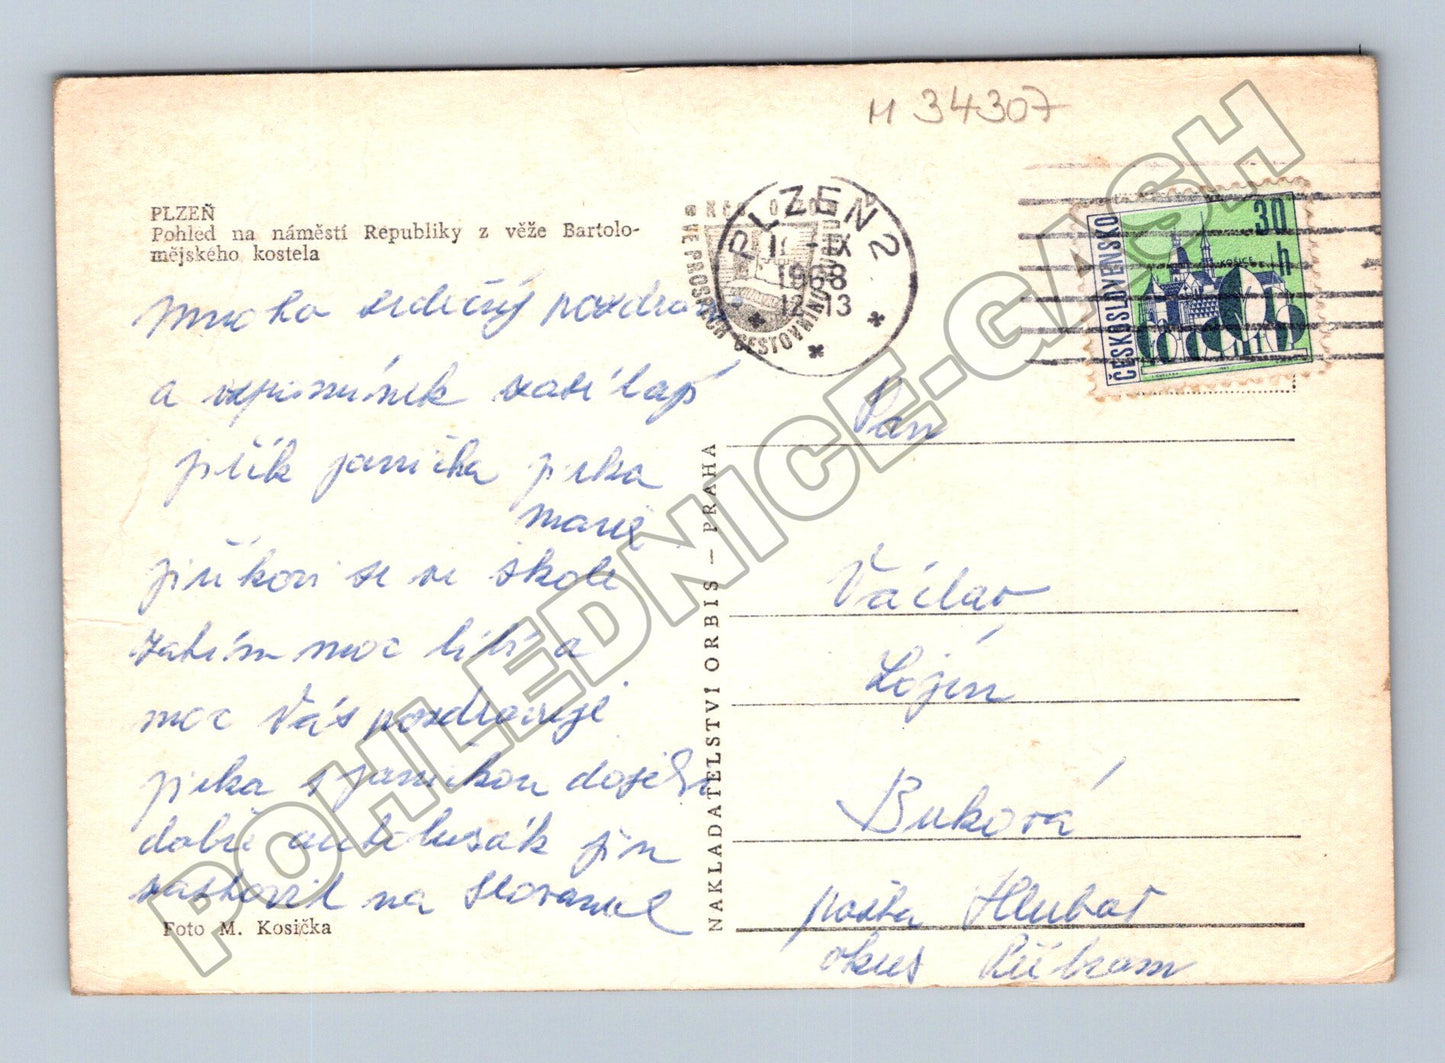 M 34307
PLZEŇ
Pohled na náměstí Republiky z věže Bartolo-
mějského kostela
PLZEŇ 2
-IX
1968
12-13
VE PROSPĚCH CESTOVNÍHO
ČESKOSLOVENSKO
30
h
KOŠICE
Mnoho srdečný pozdrav
a vzpomínek zasílají
jiřík janička jirka
marie
jiříkovi se ve škole
zatím moc líbí a
moc Vás pozdravuje
jirka s janičkou dojeli
dobře autobusák jim
zastavil na Slovanech
Foto M. Kosička
NAKLADATELSTVÍ ORBIS — PRAHA
Pan
Václav
Lojín
Buková
pošta Hluboš
okres Příbram
POHLEDNICE.CASH